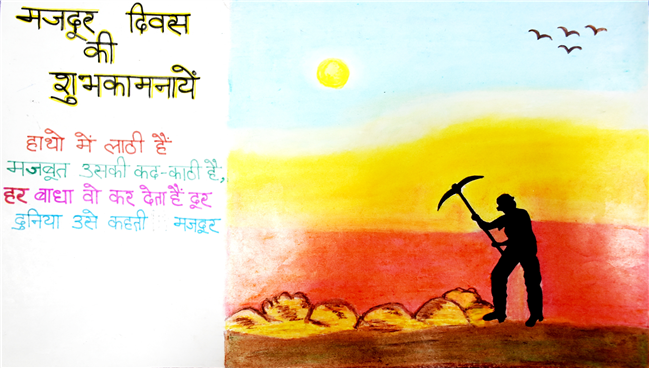 मजदूर दिवस
की
शुभकामनायें
हाथो में लाठी हैं
मजबूत उसकी कद-काठी है,
हर बाधा वो कर देता हैं दूर
दुनिया उसे कहती मजदूर